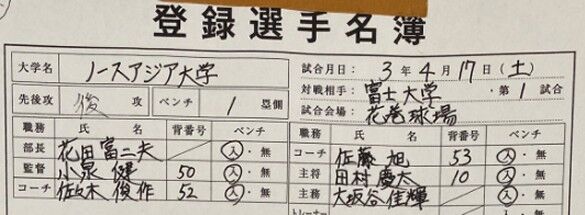 登録選手名簿
大学名 ノースアジア大学 試合月日： 3 年 4 月 17 日（土）
先後攻 後 攻 ベンチ 1 塁側 対戦相手： 富士大学 ・第 1 試合
試合会場： 花巻球場
職務 氏 名 背番号 ベンチ 職務 氏 名 背番号 ベンチ
部長 花田富二夫 入・無 コーチ 佐藤 旭 53 入・無
監督 小泉 健 50 入・無 主将 田村慶大 10 入・無
コーチ 佐々木俊作 52 入・無 主務 大坂谷佳輝 入・無